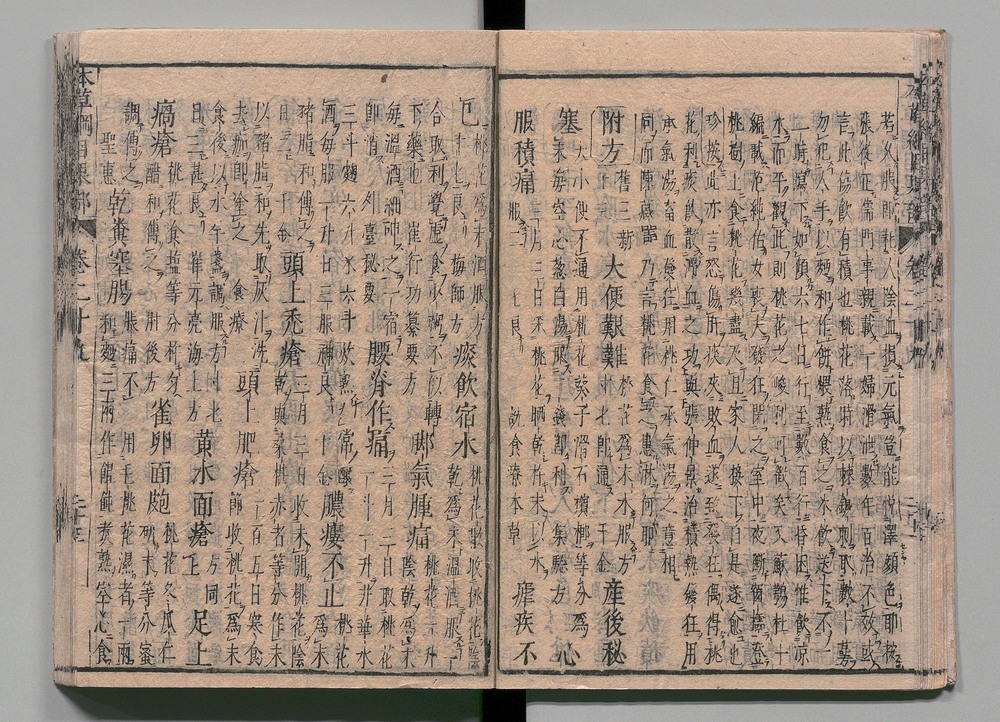 若久服即耗人陰血損元氣豈能悅澤顏色耶按
張從正儒門事親載一婦滑泄數年百治不效或
言此傷飲有積也桃花落時以棘鍼刺取數十萼
勿犯人手以麵和作餅煨熟食之米飲送下不一
二時瀉下如傾六七日行至數百行昏困惟飲涼
水而平觀此則桃花之峻利可徵矣又蘇鶚杜
編載范純佑女喪夫發狂閉之室中夜斷窗櫺登
桃樹上食桃花幾盡及旦家人接下自是遂愈也
珍按此亦驚怒傷肝痰夾敗血遂致發狂偶得桃
花利痰飲散滯血之功與張仲景治積熱發狂用
承氣湯畜血發狂用桃仁承氣湯之意相
同而陳藏器乃言桃花食之患淋何耶
附方 舊三新 大便艱難 桃花爲末水服方寸匕即通 千金 產後秘
塞 大小便不通用桃花葵子滑石檳榔等分爲末每空心葱白湯服二錢即利 集驗方 心
腹積痛 三月三日采桃花晒乾杵末以水服二錢匕良 孟詵食療本草 瘧疾不
已 桃花爲末酒服方寸匕良 梅師方 痰飲宿水 桃花收桃花陰乾爲末溫酒服一
合取利覺虛食少粥不似轉下藥也 崔行功纂要方 脚氣腫痛 桃花一升陰乾爲末
每溫酒細呷之一宿即消 外臺秘要 腰脊作痛 三月三日取桃花一斗一升井華水
三斗麴六升米六斗炊熟如常釀酒每服一升日三服神良 千金 膿瘻不止 桃花爲末
豬脂和傅之日二 千金 頭上禿瘡 三月三日收未開桃花陰乾與桑椹赤者等分作末
以豬脂和先取灰汁洗去痂即塗之 食療 頭上肥瘡 一百五日寒食節收桃花爲末
食後以水半盞調服方寸匕日三甚良 崔元亮海上方 黃水面瘡 方同上 足上
瘑瘡 桃花食鹽等分杵勻醋和傅之 肘後方 雀卵面皰 桃花冬瓜仁研末等分蜜
調傅之 聖惠 乾糞塞腸 脹痛不通用毛桃花濕者一兩和麵三兩作餛飩煮熟空心食